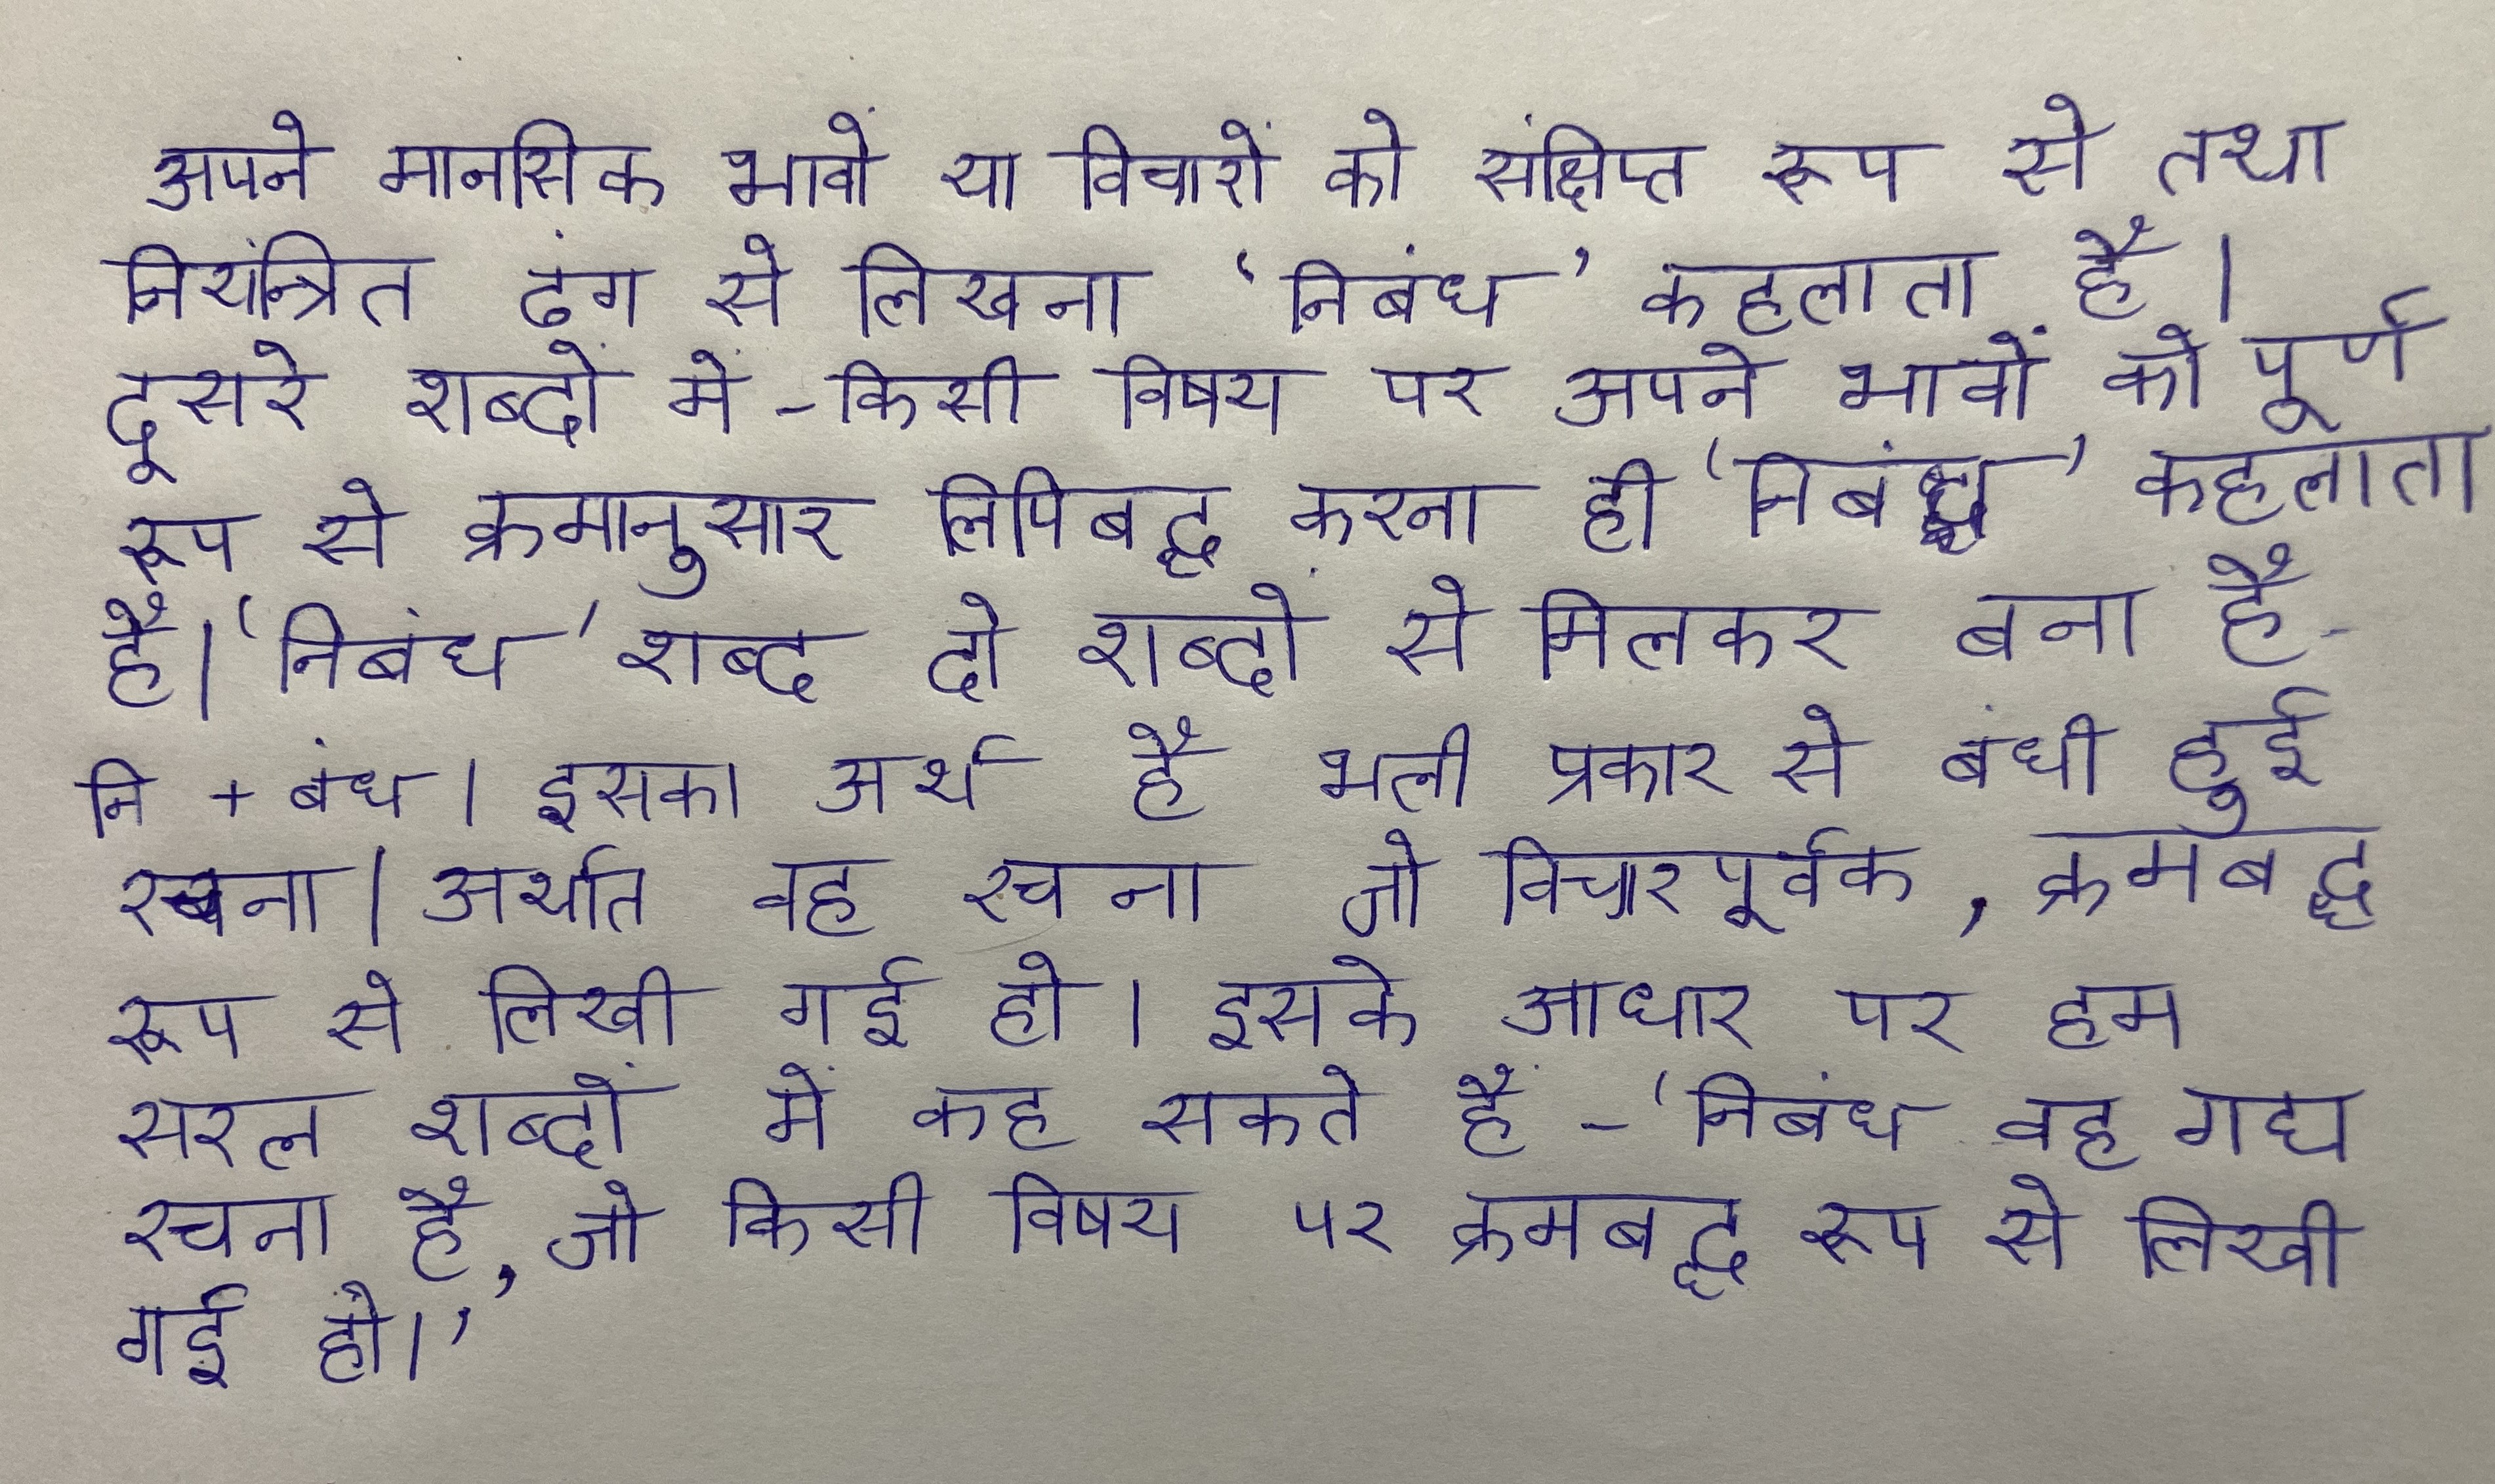 अपने मानसिक भावों या विचारों को संक्षिप्त रूप से तथा
नियंन्त्रित ढंग से लिखना 'निबंध' कहलाता है।
दूसरे शब्दों में - किसी विषय पर अपने भावों को पूर्ण
रूप से क्रमानुसार लिपिबद्ध करना ही 'निबंध' कहलाता
है। 'निबंध' शब्द दो शब्दों से मिलकर बना है-
नि + बंध। इसका अर्थ है भली प्रकार से बंधी हुई
रचना। अर्थात वह रचना जो विचारपूर्वक, क्रमबद्ध
रूप से लिखी गई हो। इसके आधार पर हम
सरल शब्दों में कह सकते हैं - 'निबंध वह गद्य
रचना है, जो किसी विषय पर क्रमबद्ध रूप से लिखी
गई हो।'